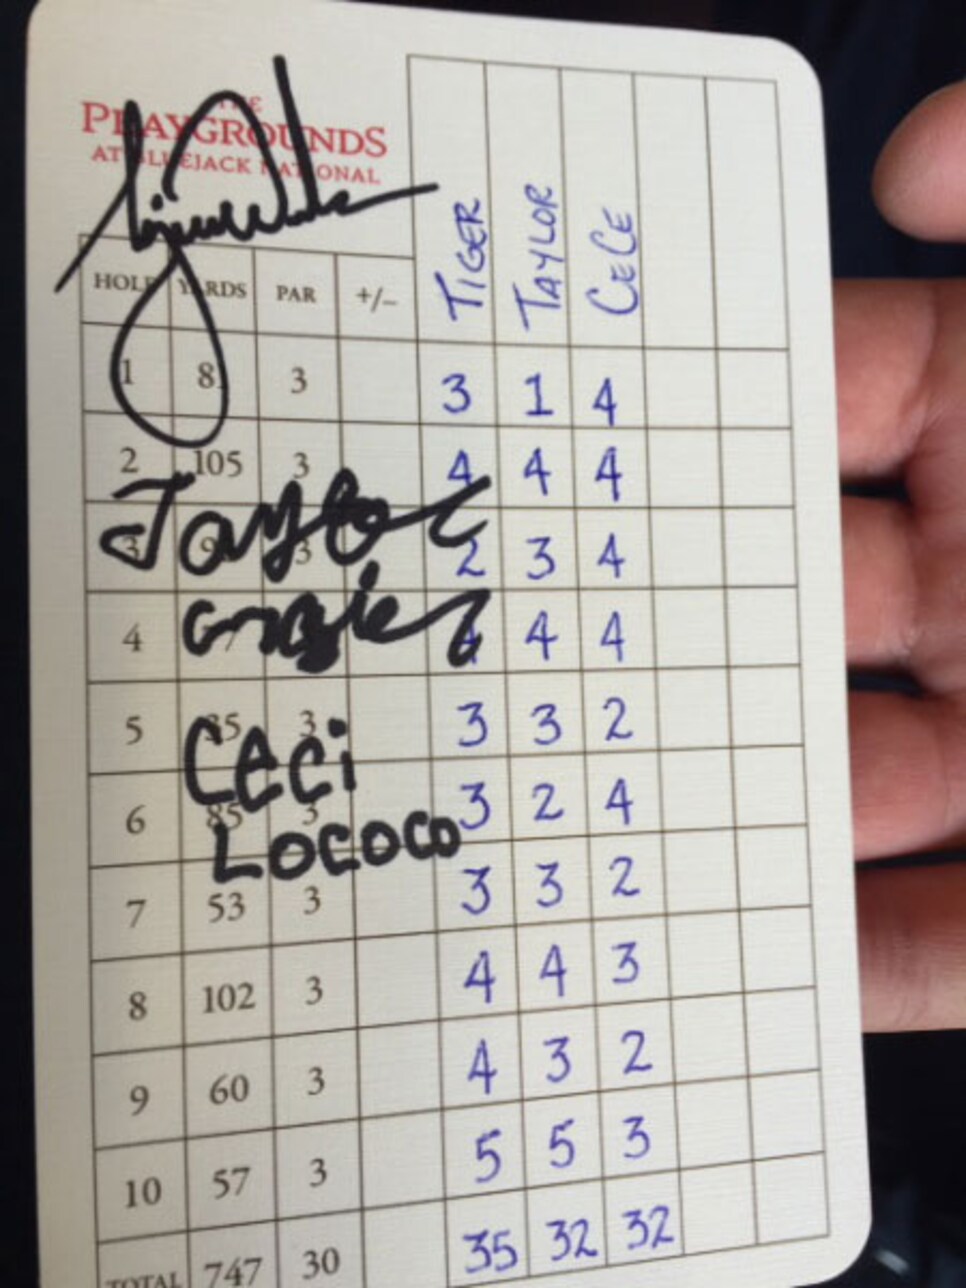 THE
PLAYGROUNDS
AT BLUEJACK NATIONAL
HOLE YARDS PAR +/– TIGER TAYLOR CECE
1 8 3 3 1 4
2 105 3 4 4 4
3 9 3 2 3 4
Taylor
4 4 4 4
5 85 3 3 3 2
Ceci
6 85 3 3 2 4
Lococo
7 53 3 3 3 2
8 102 3 4 4 3
9 60 3 4 3 2
10 57 3 5 5 3
TOTAL 747 30 35 32 32